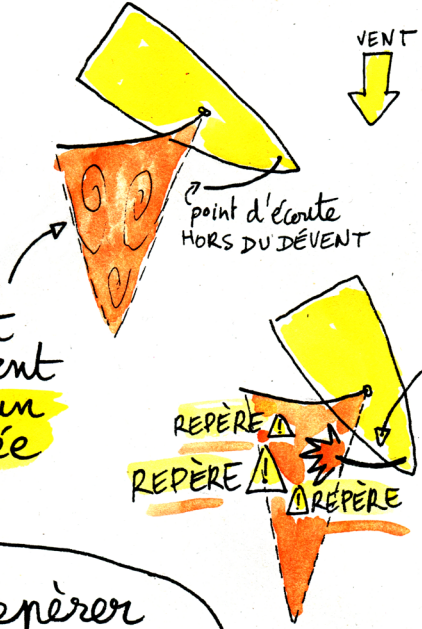 VENT
point d'écoute
HORS DU DÉVENT
un
REPÈRE
REPÈRE
REPÈRE